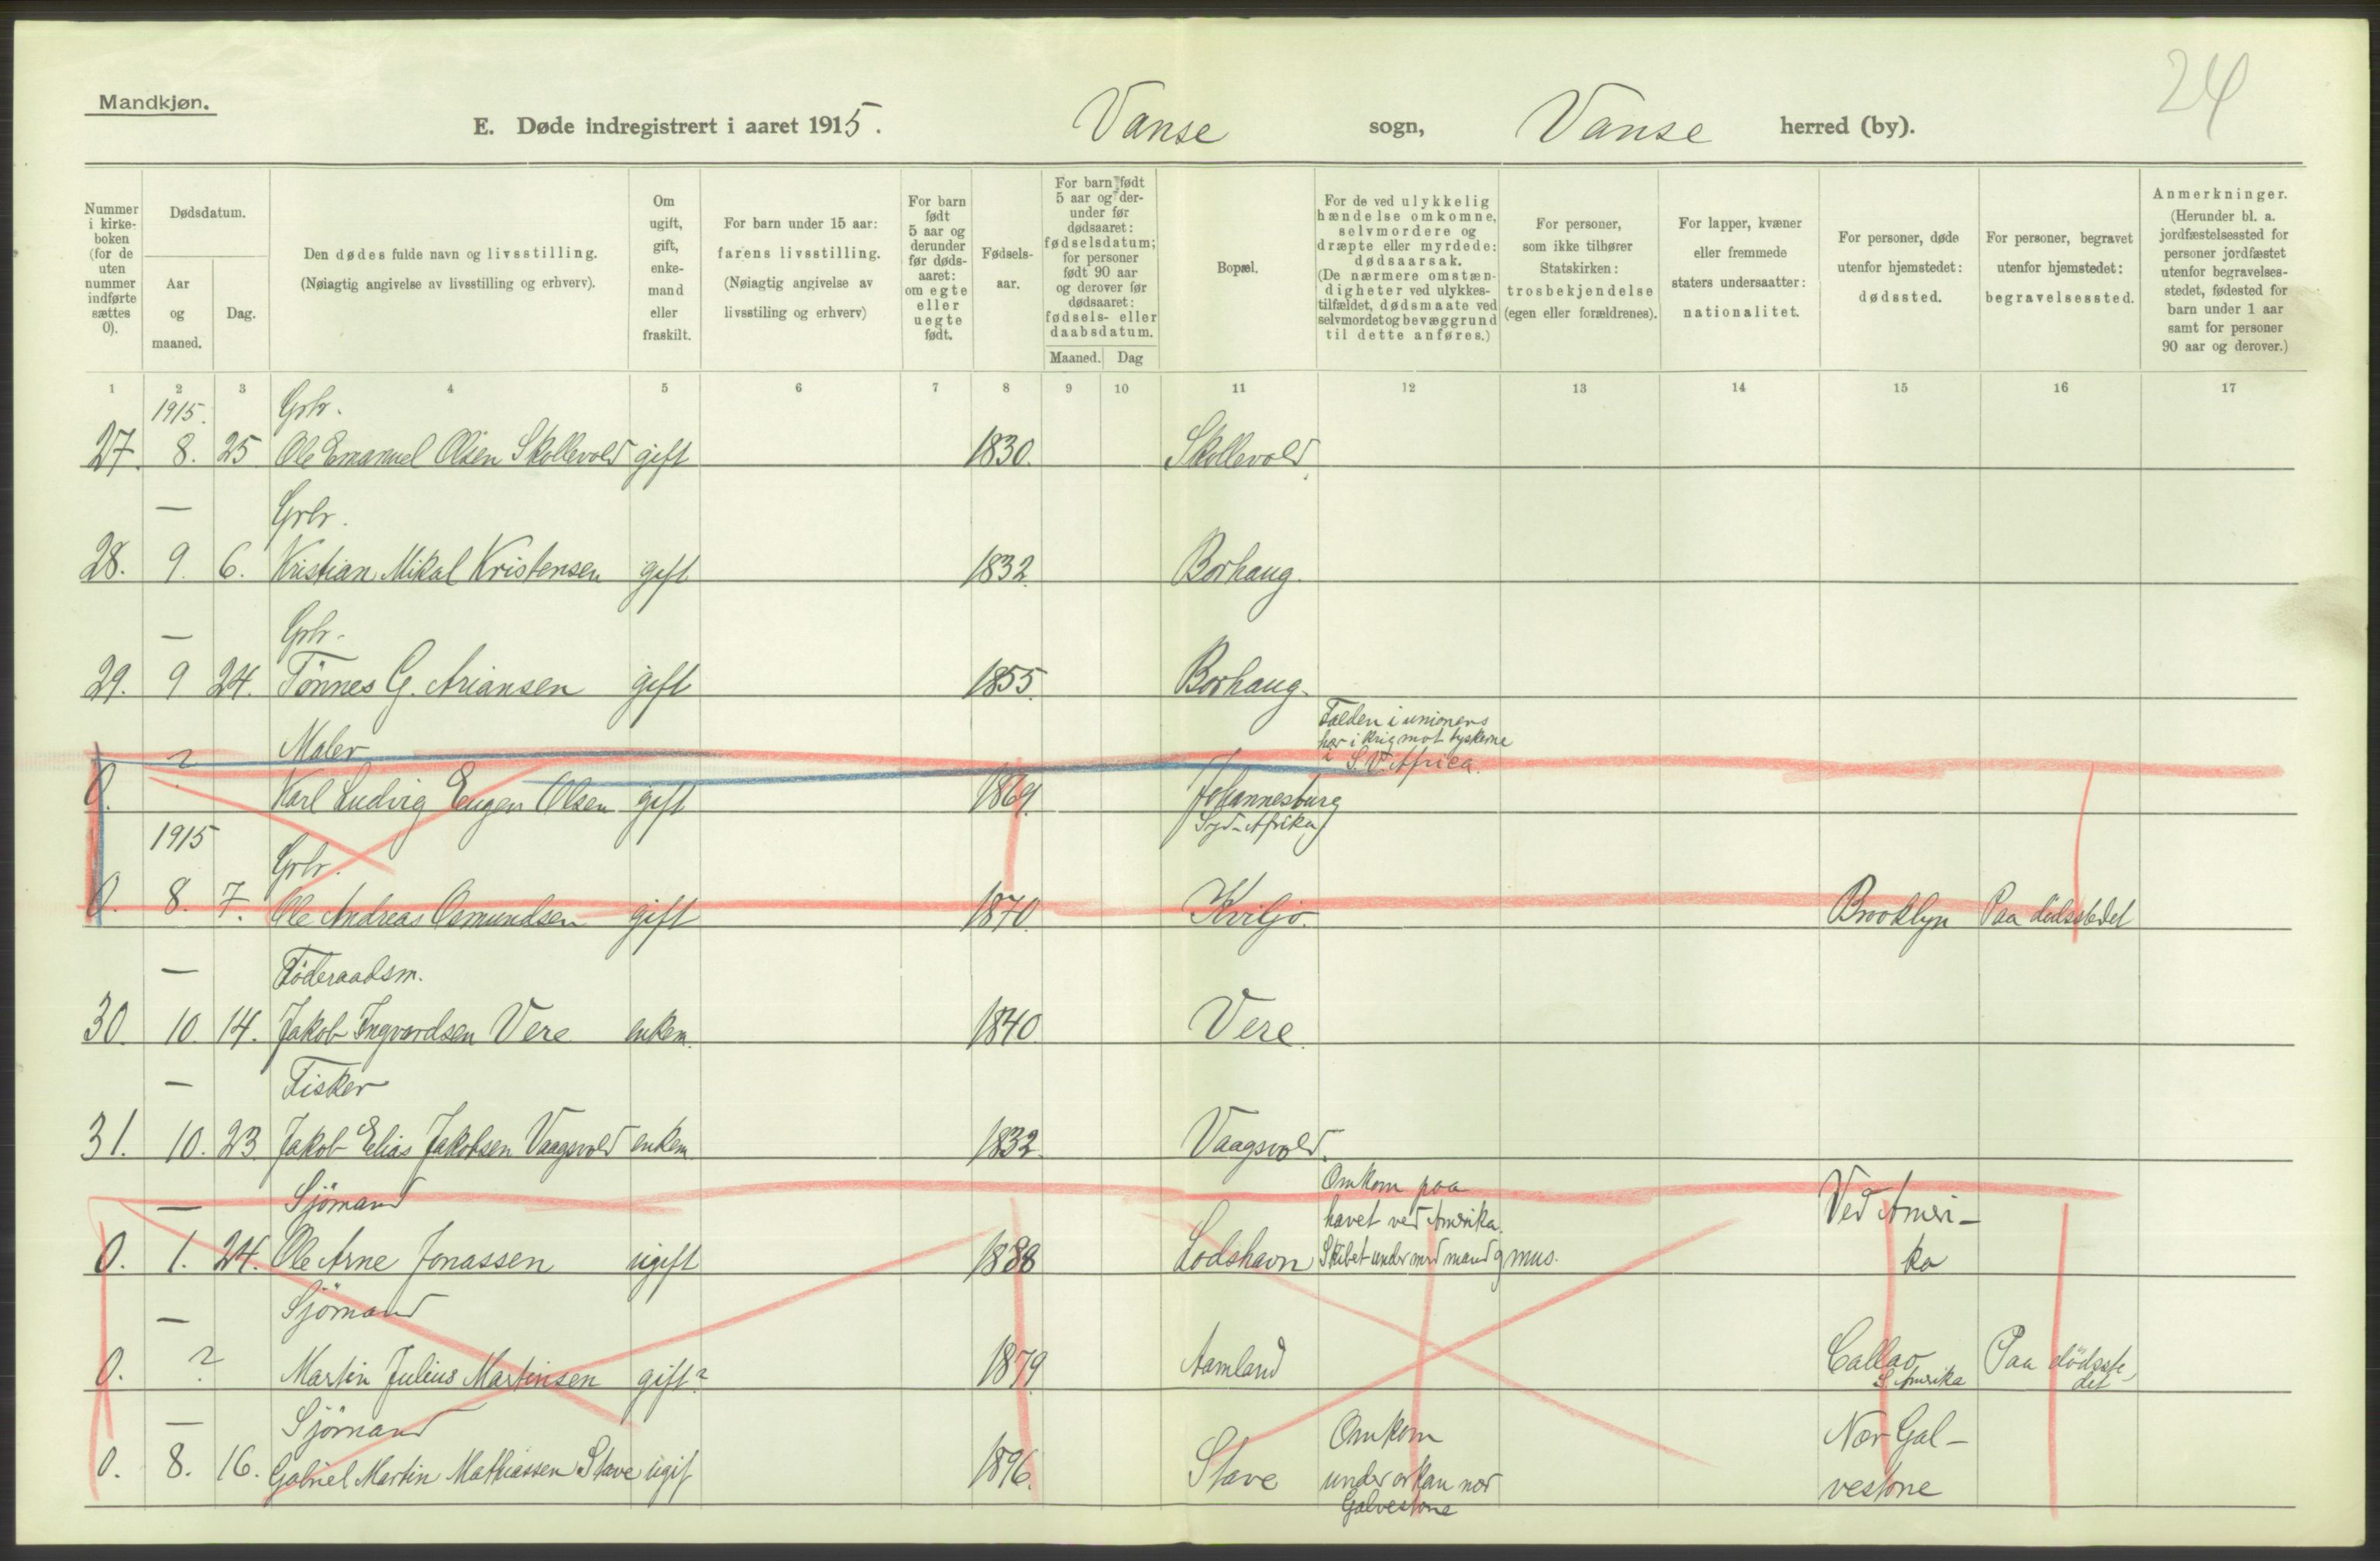 24
Mandkjøn.
E. Døde indregistrert i aaret 1915. Vanse sogn, Vanse herred (by).
Nummer i kirke- boken (for de uten nummer indførte sættes 0).
Dødsdatum.
Aar og maaned.
Dag.
Den dødes fulde navn og livsstilling.
(Nøiagtig angivelse av livsstilling og erhverv).
Om ugift, gift, enke- mand eller fraskilt.
For barn under 15 aar: farens livsstilling.
(Nøiagtig angivelse av livsstiling og erhverv)
For barn født 5 aar og derunder før døds- aaret: om egte eller uegte født.
Fødsels- aar.
For barn født 5 aar og der- under før dødsaaret: fødselsdatum; for personer født 90 aar og derover før dødsaaret: fødsels- eller daabsdatum.
Maaned. Dag
Bopæl.
For de ved ulykkelig hændelse omkomne, selvmordere og dræpte eller myrdede: dødsaarsak.
(De nærmere omstæn- digheter ved ulykkes- tilfældet, dødsmaate ved selvmordet og bevæggrund til dette anføres.)
For personer, som ikke tilhører Statskirken: trosbekjendelse (egen eller forældrenes).
For lapper, kvæner eller fremmede staters undersaatter: nationalitet.
For personer, døde utenfor hjemstedet: dødssted.
For personer, begravet utenfor hjemstedet: begravelsessted.
Anmerkninger.
(Herunder bl. a. jordfæstelsessted for personer jordfæstet utenfor begravelses- stedet, fødested for barn under 1 aar samt for personer 90 aar og derover.)
1 2 3 4 5 6 7 8 9 10 11 12 13 14 15 16 17
1915. Grbr.
27. 8. 25 Ole Emanuel Olsen Skollevold gift 1830. Skollevold.
— Grbr.
28. 9. 6. Kristian Mikal Kristensen gift 1832. Borhaug.
— Grbr.
29. 9 24. Tønnes G. Ariansen gift 1855. Borhaug.
? Maler Falden i unionens
hær i krig mot tyskerne
i S. V. Africa.
0. Karl Ludvig Eugen Olsen gift 1869. Johannesburg
Syd-Afrika
1915 Grbr.
0. 8. 7. Ole Andreas Osmundsen gift 1870. Kviljo. Brooklyn Paa dødsstedet
— Føderaadsm.
30. 10. 14. Jakob Ingvardsen Vere enkem. 1840. Vere.
— Fisker
31. 10. 23. Jakob Elias Jakobsen Vaagsvold enkem 1832. Vaagsvold.
— Sjömand Omkom paa
havet ved Amerika. Ved Ameri-
0. 1. 24. Ole Arne Jonassen ugift 1888 Lodshavn Skibet under med mand og mus. ka
— Sjömand
0. ? Martin Julius Martinsen gift? 1879 Aamland Callao S. Amerika Paa dödsste
det
— Sjömand Omkom Nær Gal-
0. 8. 16. Gabriel Martin Mathiassen Stave ugif 1896. Stave under orkan nær vestone
Galvestone